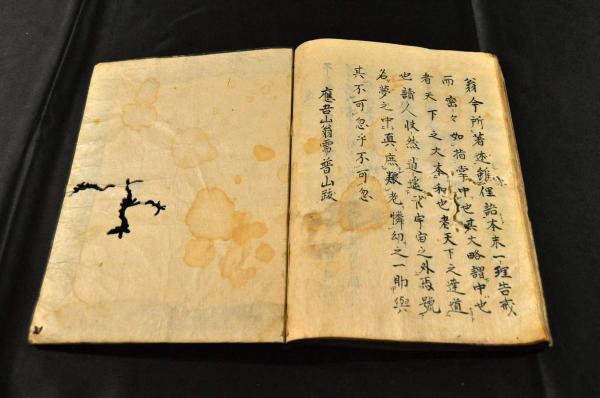 翁今所著述雖俚語本末一理告戒
而密々如指掌中也其大略謂中也
者天下之大本和也者天下之達道
也讀人怏然逍遥於宇宙之外焉號
名夢之中真庶幾老憐幼之一助與
其不可忽乎不可忽
應吾山翁需普山跋